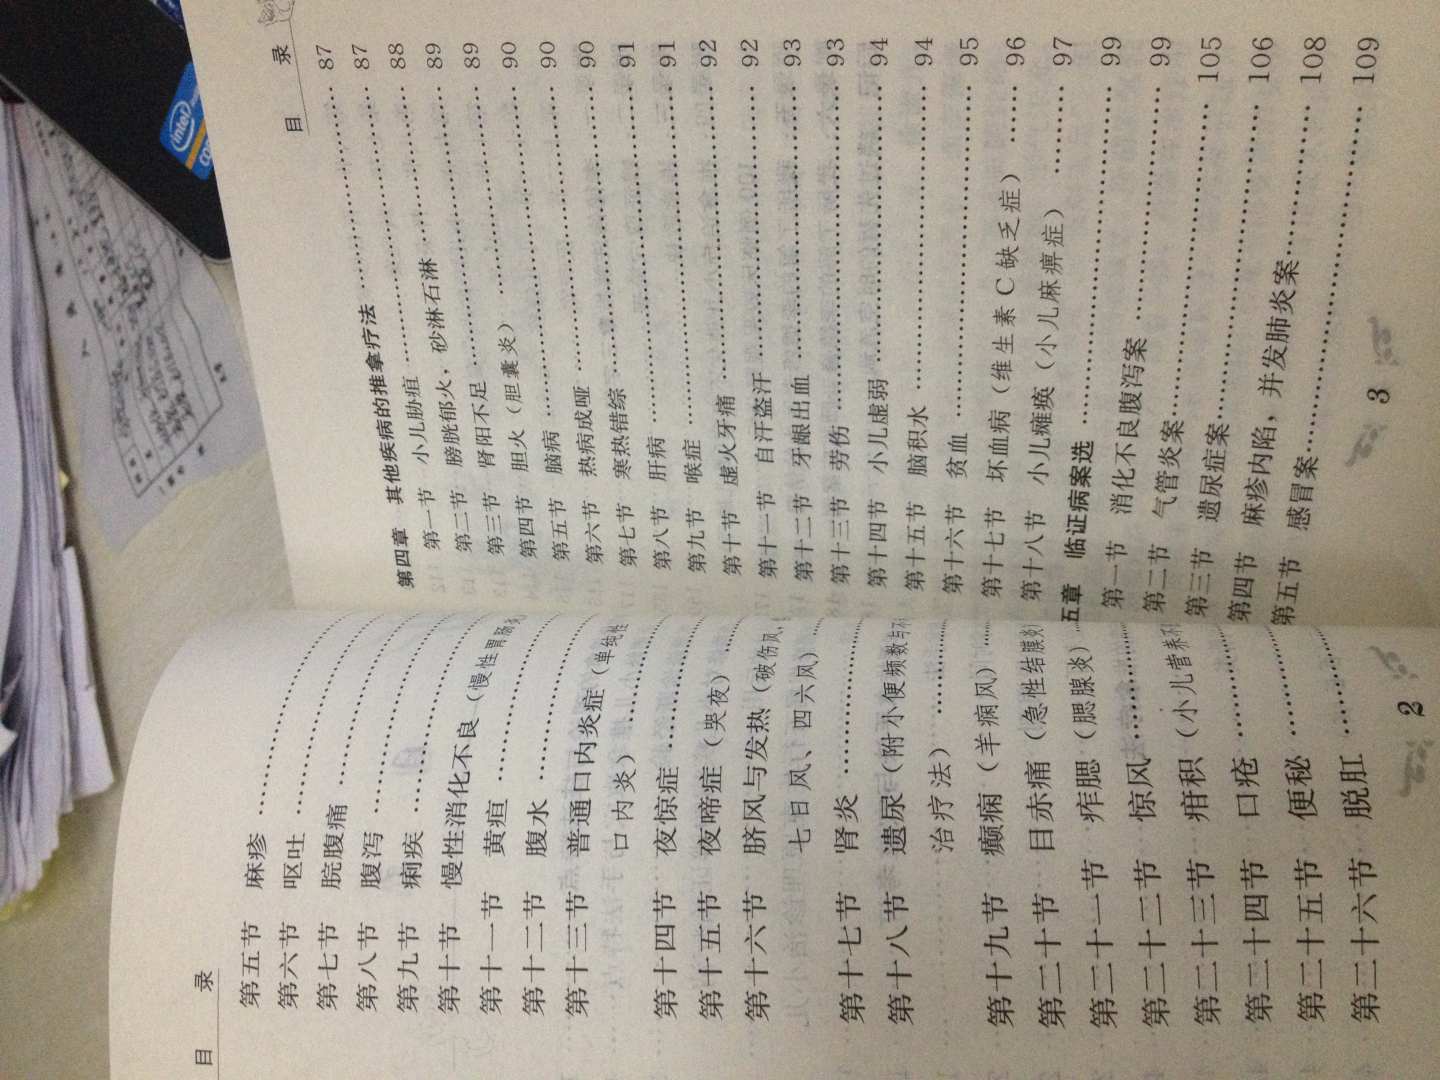 目 录
第五节 麻疹……………………
第六节 呕吐……………………
第七节 脘腹痛…………………
第八节 腹泻……………………
第九节 痢疾……………………
第十节 慢性消化不良（慢性胃肠炎
第十一节 黄疸…………………
第十二节 腹水…………………
第十三节 普通口内炎症（单纯性
口内炎）…………
第十四节 夜惊症………………
第十五节 夜啼症（哭夜）……
第十六节 脐风与发热（破伤风、
七日风、四六风）……
第十七节 肾炎…………………
第十八节 遗尿（附小便频数与不
治疗法）…………
第十九节 癫痫（羊痫风）……
第二十节 目赤痛（急性结膜炎）
第二十一节 痄腮（腮腺炎）……
第二十二节 惊风………………
第二十三节 疳积（小儿营养不
第二十四节 口疮………………
第二十五节 便秘………………
第二十六节 脱肛………………
2
目 录
第四章 其他疾病的推拿疗法…………………… 87
第一节 小儿胁疽…………………… 87
第二节 膀胱郁火，砂淋石淋…………………… 88
第三节 肾阳不足…………………… 89
第四节 胆火（胆囊炎）…………………… 89
第五节 脑病…………………… 90
第六节 热病成哑…………………… 90
第七节 寒热错综…………………… 90
第八节 肝病…………………… 91
第九节 喉症…………………… 91
第十节 虚火牙痛…………………… 92
第十一节 自汗盗汗…………………… 92
第十二节 牙龈出血…………………… 93
第十三节 劳伤…………………… 93
第十四节 小儿虚弱…………………… 94
第十五节 脑积水…………………… 94
第十六节 贫血…………………… 95
第十七节 坏血病（维生素C缺乏症）…… 96
第十八节 小儿瘫痪（小儿麻痹症）……… 97
五章 临证病案选…………………… 99
第一节 消化不良腹泻案…………………… 99
第二节 气管炎案…………………… 105
第三节 遗尿症案…………………… 106
第四节 麻疹内陷，并发肺炎案…………… 108
第五节 感冒案…………………… 109
3
intel